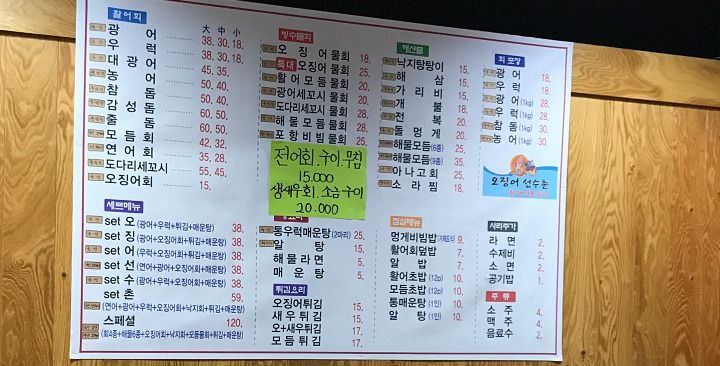 활어회 大 中 小
광어 38, 30, 18,
우럭 38, 30, 18,
대광어 45, 35,
농어 50, 40,
참돔 50, 40,
감성돔 60, 50,
줄돔 60, 50,
모듬회 42, 32,
연어회 35, 28,
도다리세꼬시 55, 45,
오징어회 15,
세트메뉴
set 오 (광어+우럭+튀김+매운탕) 38,
set 징 (광어+오징어회+튀김+매운탕) 38,
set 어 (연어+광어+튀김+매운탕) 38,
set 선 (연어+광어+오징어회+튀김) 38,
set 수 (광어+오징어회+튀김+매운탕) 38,
set 촌 59,
(연어+광어+우럭+오징어회+낙지회+튀김+매운탕)
스페셜 120,
(회4종+해물6종+오징어회+낙지회+모듬물회+튀김+매운탕)
빙수물회
오징어물회 18,
특대 오징어물회 25,
활어모듬물회 25,
광어세꼬시물회 20,
도다리세꼬시물회 28,
해물모듬물회 28,
포항비빔물회 25,
전어회.구이.무침
15.000
생새우회.소금구이
20.000
통우럭매운탕 (2마리) 25,
알탕 15,
해물라면 5,
매운탕 5,
튀김요리
오징어튀김 15,
새우튀김 15,
오+새우튀김 17,
모듬튀김 17,
해산물
낙지탕탕이 15,
해삼 15,
가리비 15,
개불 18,
전복 20,
돌멍게 20,
해물모듬 (6종) 25,
해물모듬 (9종) 35,
아나고회 25,
소라찜 18,
점심메뉴
멍게비빔밥 9,
활어회덮밥 7,
알밥 7,
활어초밥 (12p) 10,
모듬초밥 (12p) 10,
통매운탕 (1인) 10,
알탕 (1인) 10,
회포장
광어 18,
우럭 18,
광어 (1kg) 28,
우럭 (1kg) 28,
참돔 (1kg) 30,
농어 (1kg) 30,
오징어 선수촌
사리추가
라면 2,
수제비 2,
소면 2,
공기밥 1,
주류
소주 4,
맥주 4,
음료수 2,